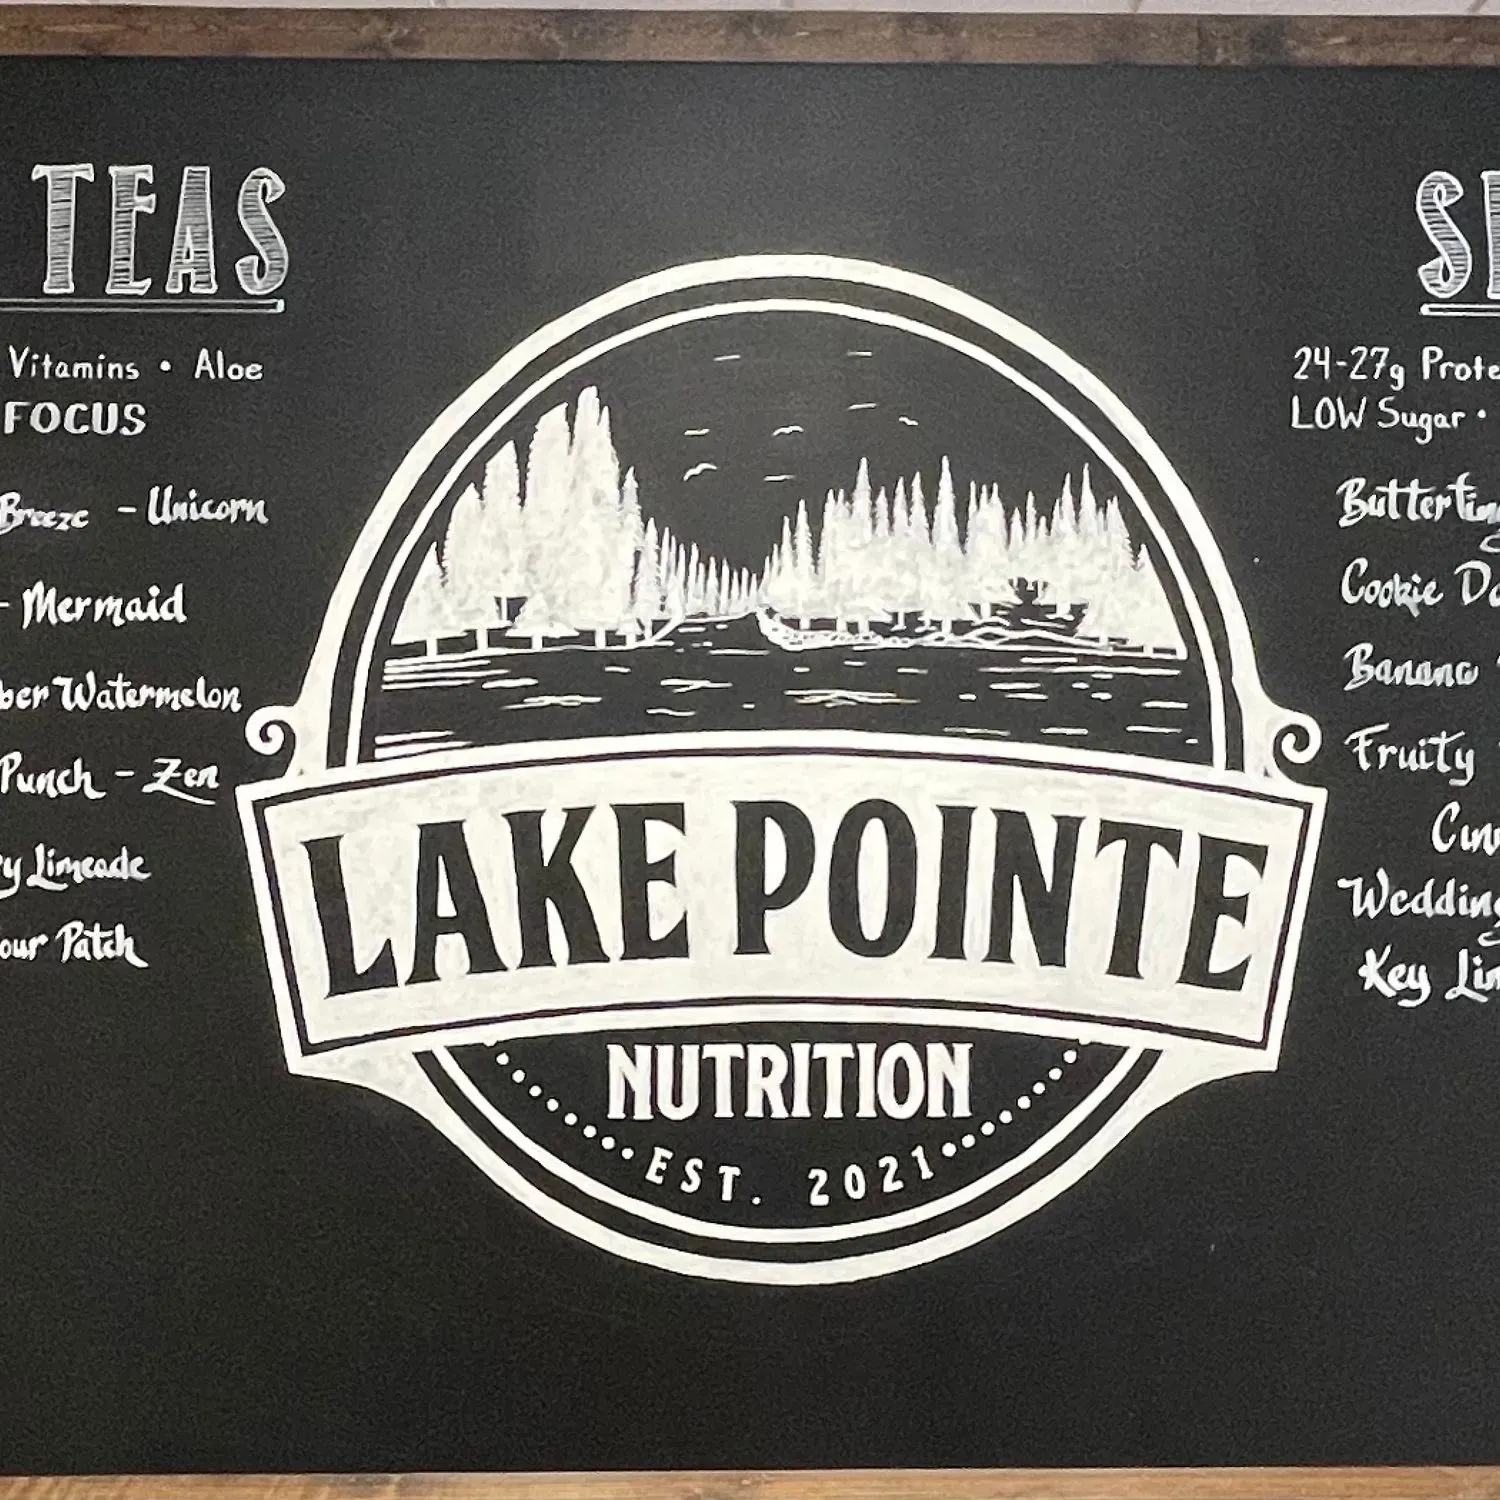 TEAS
Vitamins • Aloe
FOCUS
Breeze - Unicorn
- Mermaid
Watermelon
Punch - Zen
Limeade
Patch
LAKE POINTE
NUTRITION
EST. 2021
24-27g
LOW Sugar •
Cookie
Banana
Fruity
Wedding
Key